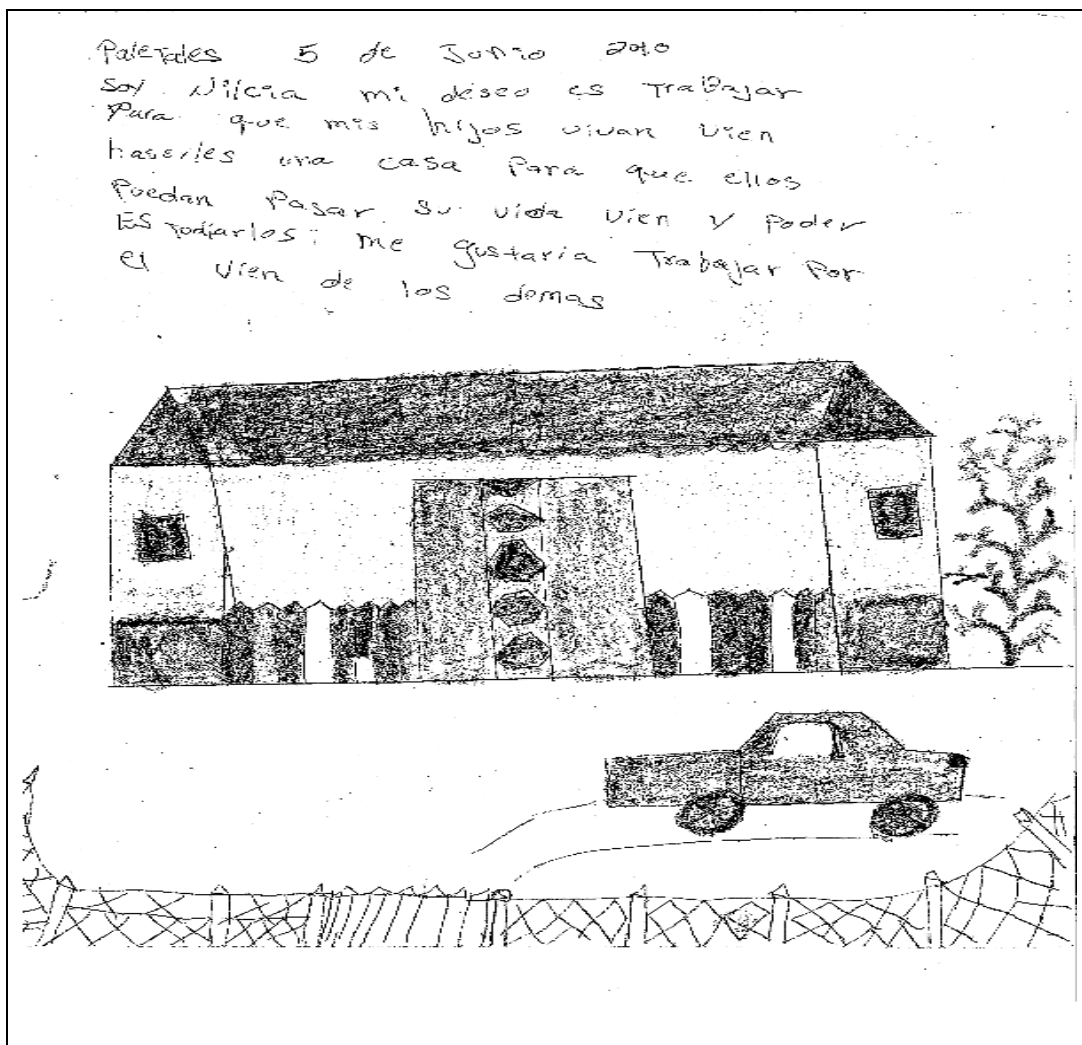 Paletales 5 de Junio 2010
Soy Nilcia mi deseo es Trabajar
Para que mis hijos vivan vien
haserles una casa Para que ellos
Puedan Pasar su vida vien y Poder
EStudiarlos; me gustaria Trabajar Por
el vien de los demas